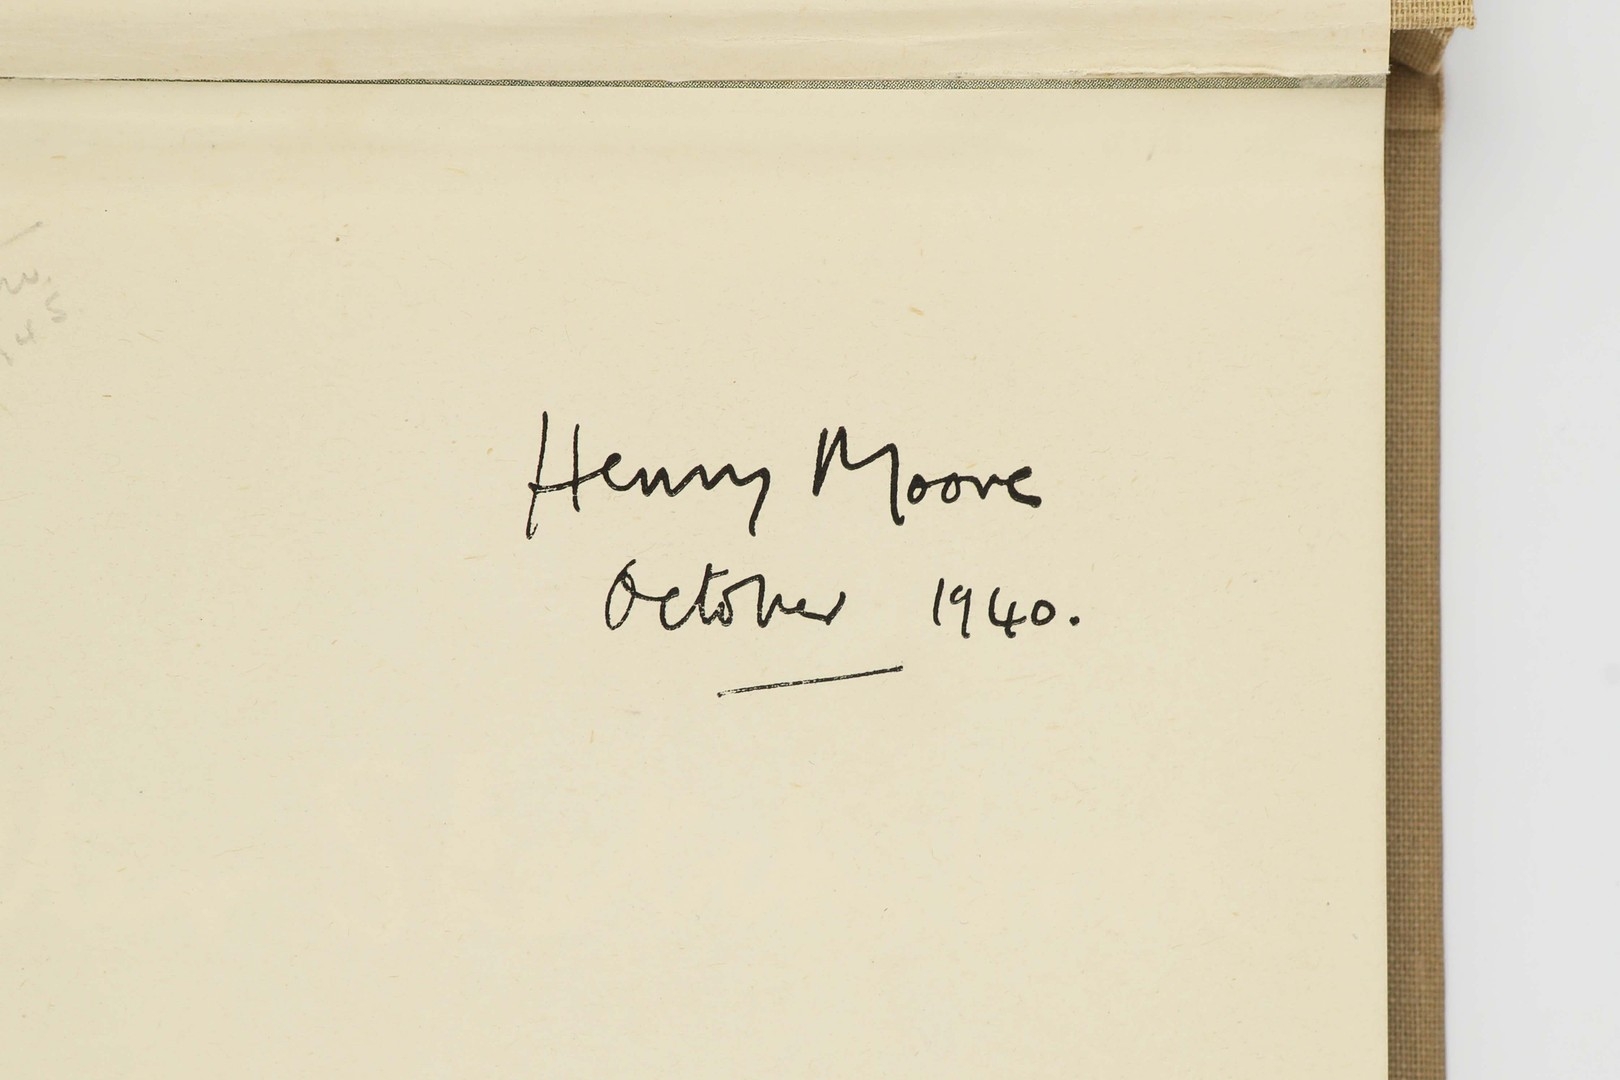 Henry Moore
October 1940.